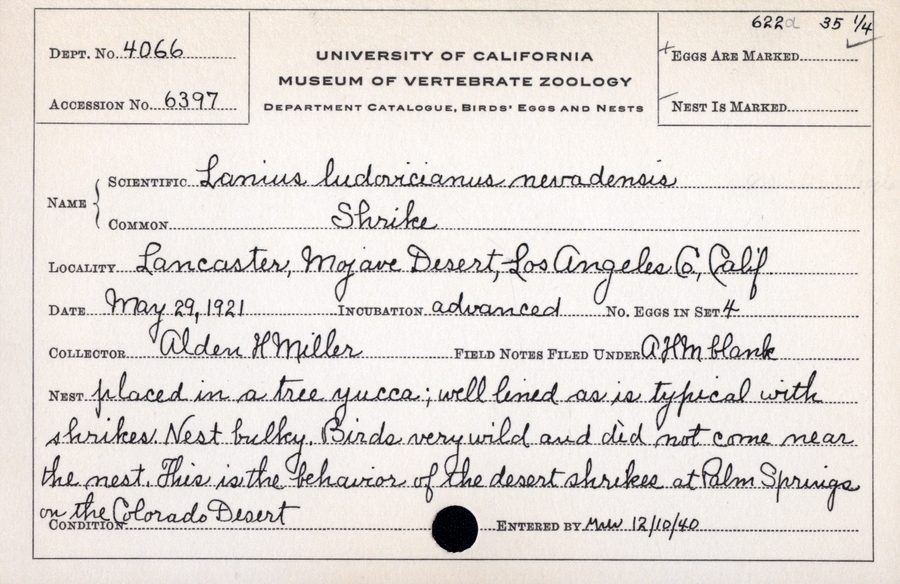 622a 35 1/4
DEPT. NO. 4066
UNIVERSITY OF CALIFORNIA
EGGS ARE MARKED
MUSEUM OF VERTEBRATE ZOOLOGY
ACCESSION NO. 6397
DEPARTMENT CATALOGUE, BIRDS' EGGS AND NESTS
NEST IS MARKED
NAME { SCIENTIFIC Lanius ludovicianus nevadensis
COMMON Shrike
LOCALITY Lancaster, Mojave Desert, Los Angeles Co., Calif.
DATE May 29, 1921 INCUBATION advanced NO. EGGS IN SET 4
COLLECTOR Alden H Miller FIELD NOTES FILED UNDER AHM blank
NEST placed in a tree yucca; well lined as is typical with
shrikes. Nest bulky. Birds very wild and did not come near
the nest. This is the behavior of the desert shrikes at Palm Springs
on the Colorado Desert
CONDITION ENTERED BY 12/10/40